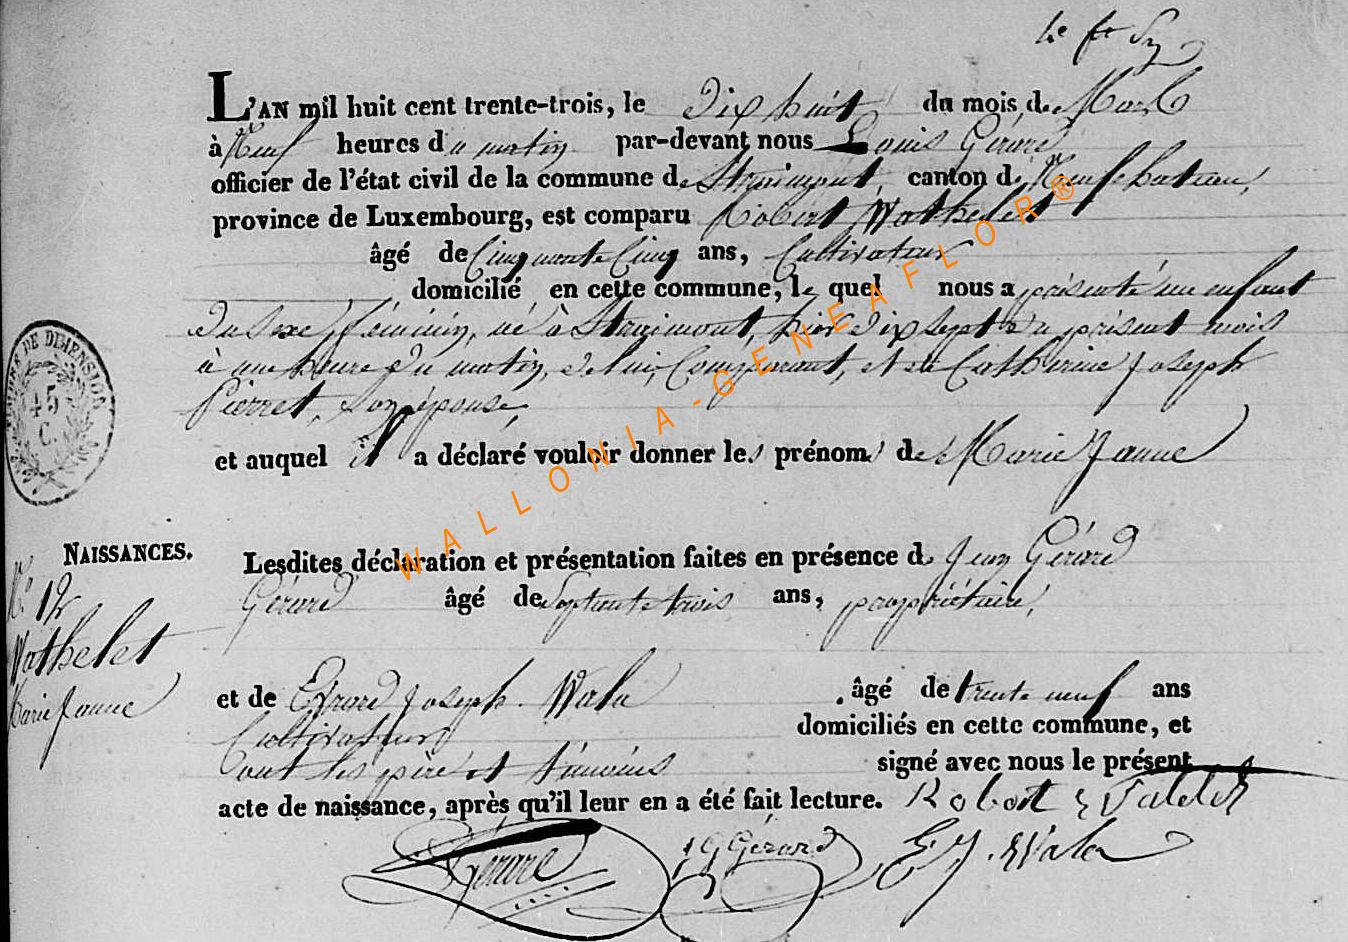 L'AN mil huit cent trente-trois, le Dix huit du mois de Mars
à Neuf heures du matin par-devant nous Louis Gérard
officier de l'état civil de la commune de Straimont, canton de Neufchateau,
province de Luxembourg, est comparu Robert Wathelet
âgé de Cinquante Cinq ans, Cultivateur
domicilié en cette commune, le quel nous a présenté un enfant
du sexe féminin, né à Straimont, hier dix sept du présent mois
à une heure du matin, de lui, Comparant, et de Catherine Joseph
Pierret, son épouse,
et auquel il a déclaré vouloir donner les prénoms de Marie Janne
NAISSANCES.
N.° 12
Wathelet
Marie Janne
Lesdites déclaration et présentation faites en présence de Jean Gérard
Gérard âgé de Septante trois ans, propriétaire,
et de Erard Joseph Wala âgé de trente neuf ans
Cultivateur domiciliés en cette commune, et
ont les père et témoins signé avec nous le présent
acte de naissance, après qu'il leur en a été fait lecture. Robert
Gérard JG Gérard EJ. Wala
DE DIMENSION
45
C.
WALLONIA-GENEAFLOR®